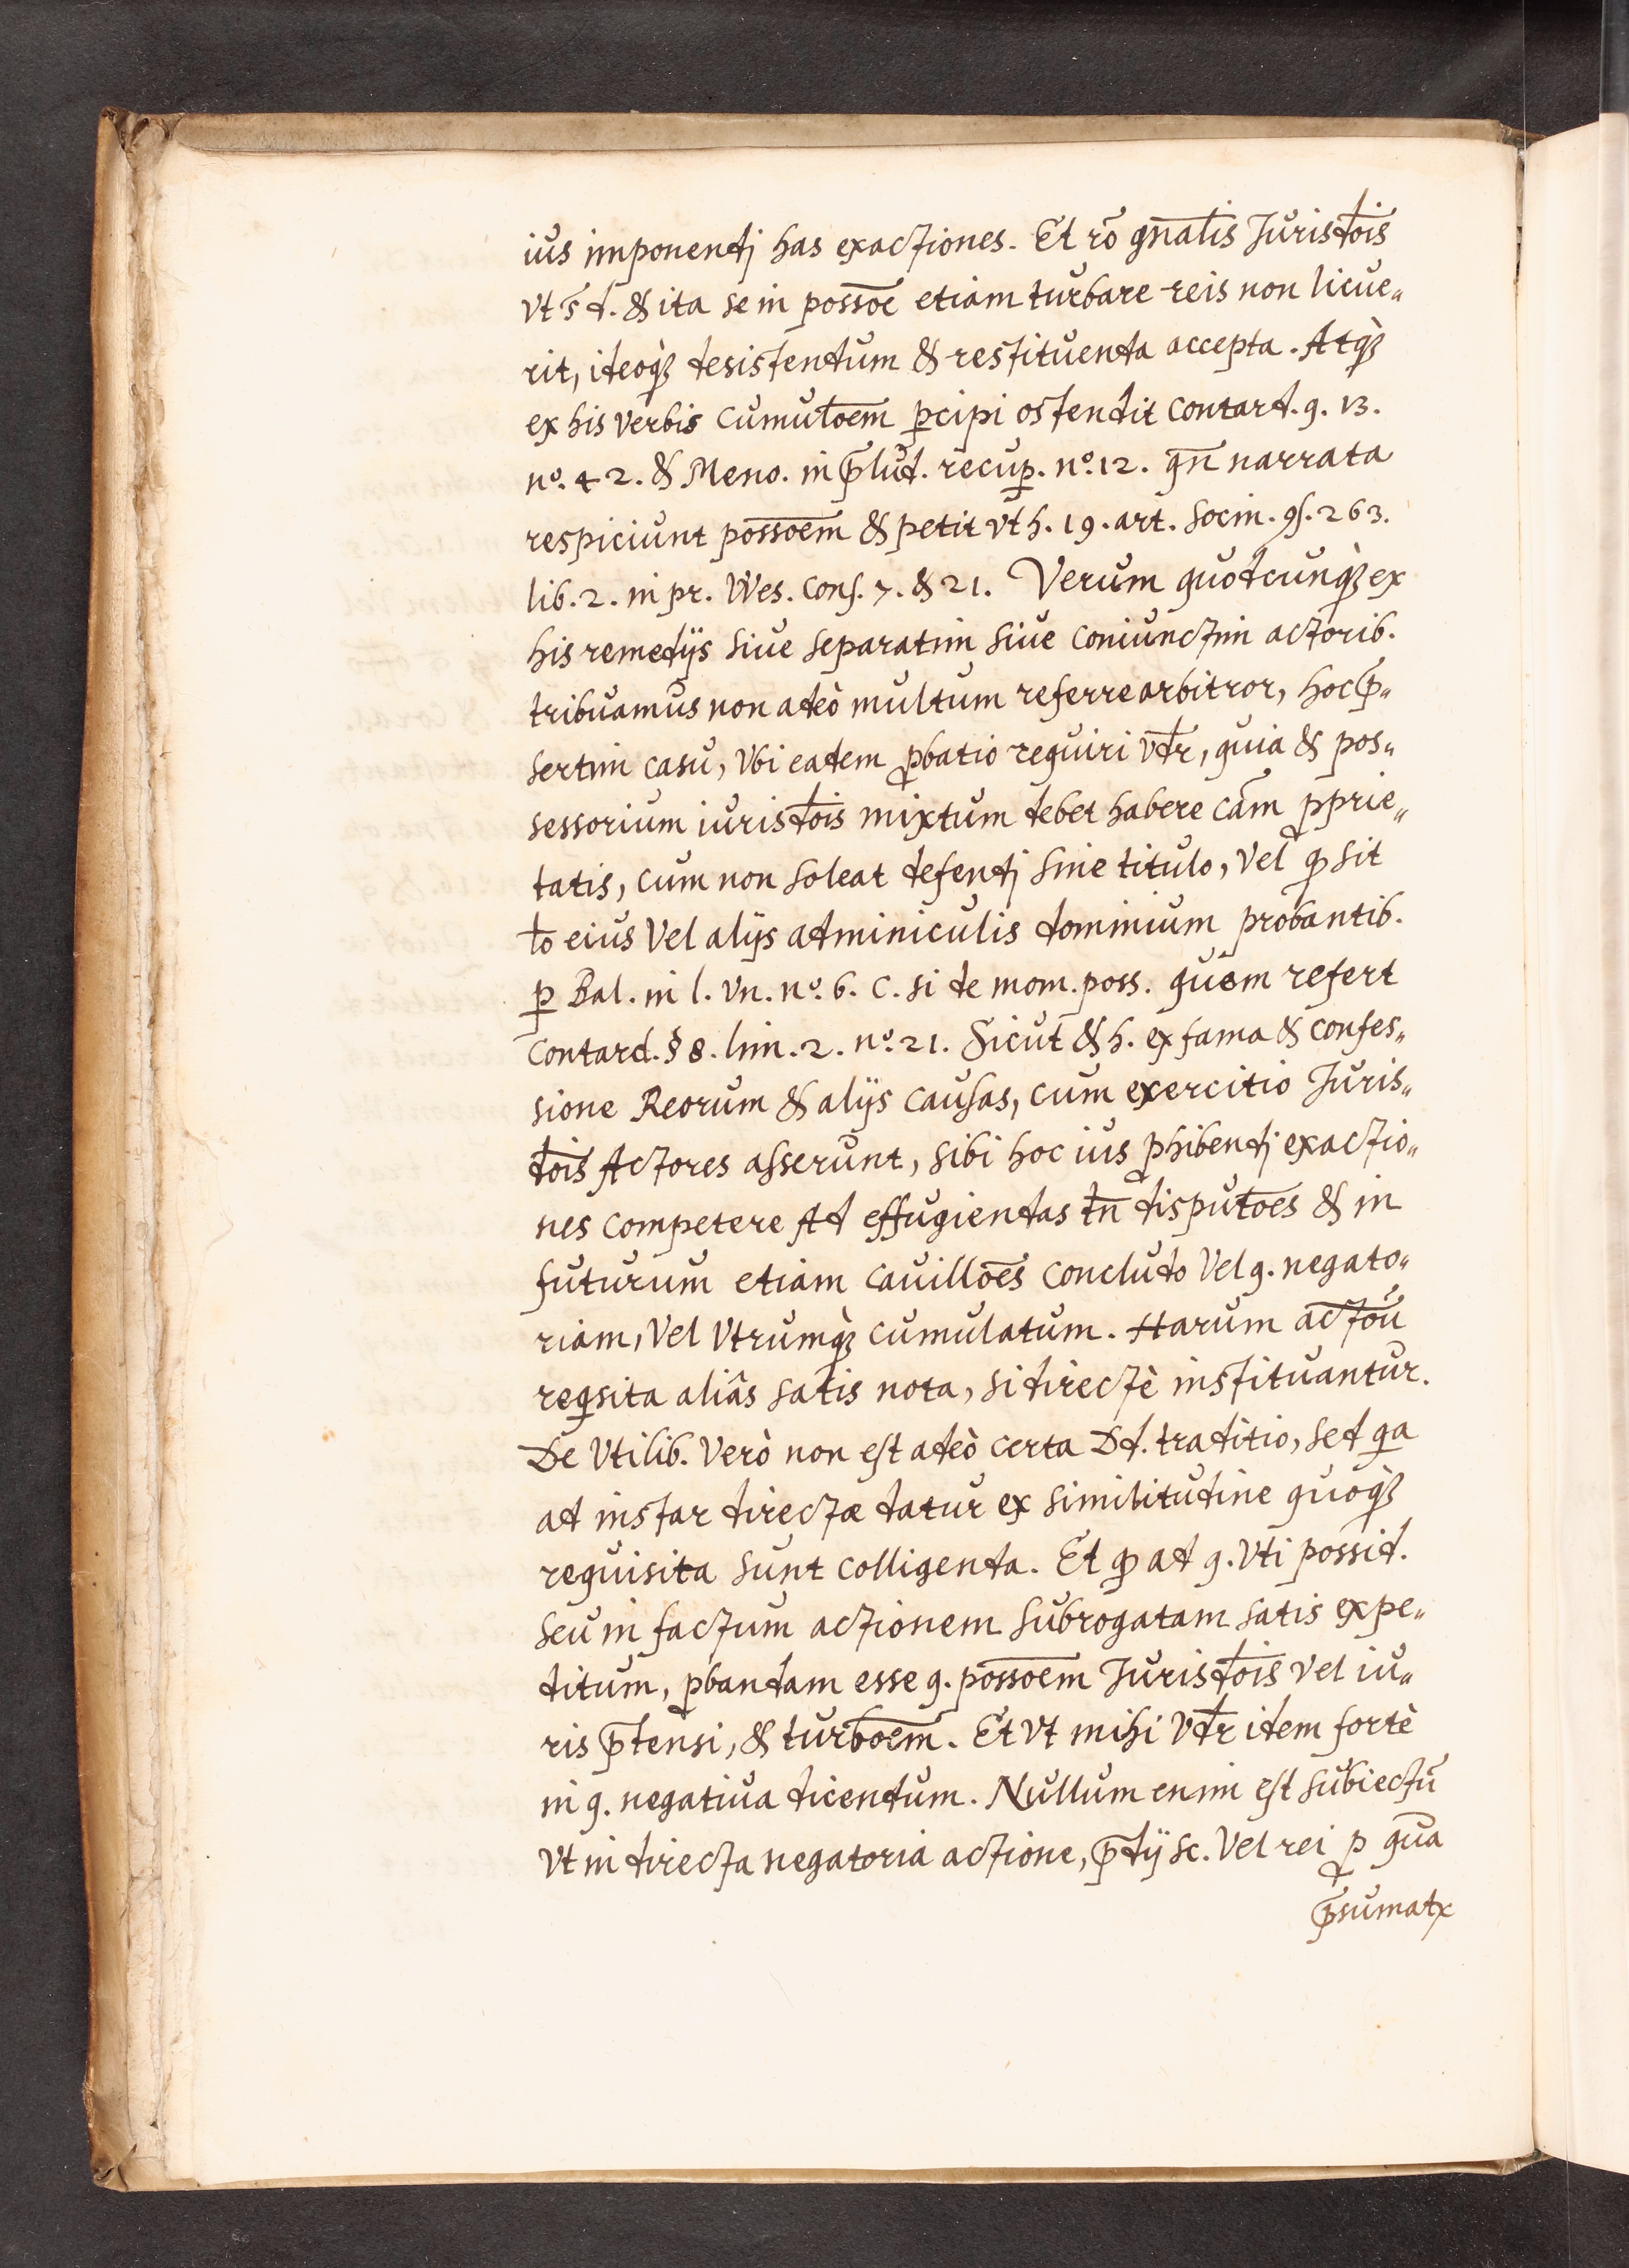 ius imponendj has exactiones. Et rō gn̄alis Jurisd̄ois
vt s̄ d. & ita se in possōe etiam turbare reis non licue„
rit, ideoq́ꝫ desistendum & restituenda accepta. Atq́ꝫ
ex his verbis cumulōem ꝑcipi ostendit Contard. q. 13.
nº. 42. & Meno. in p̄lud. recuꝑ. nº. 12. gn̄ narrata
respiciunt possōem & petit vt h. 19. art. Socin. ꝯs. 263.
lib. 2. in pr. Wes. cons. 7. & 21. Verum quodcunq́ꝫ ex
his remedijs siue separatim siue coniunctim actorib.
tribuamus non adeò multum referre arbitror, hoc p̄„
sertim casu, vbi eadem ꝓbatio requiri vd̄r, quia & pos„
sessorium iurisd̄ois mixtum debet habere cām ꝓprie„
tatis, cum non soleat defendj sine titulo, vel ꝙ sit
lo eius vel alijs adminiculis dominium probantib.
ꝑ Bal. in l. vn. nº. 6. C. si de mom. poss. quem refert
Contard. § 8. lim. 2. nº. 21. Sicut & h. ex fama & confes„
sione Reorum & alijs causas, cum exercitio Juris„
d̄ois Actores asserunt, sibi hoc ius ꝓhibendj exactio„
nes competere Ad effugiendas tn̄ disputōes & in
futurum etiam cauillōes concludo vel q. negato„
riam, vel vtrumq́ꝫ cumulatum. Harum actōū
reqsita aliâs satis nota, si directè instituantur.
De Vtilib. verò non est adeò certa Dd. traditio, sed qa
ad instar directæ datur ex similitudine quoq́ꝫ
requisita sunt colligenda. Et ꝙ ad q. vti possid.
seu in factum actionem subrogatam satis expe„
ditum, ꝓbandam esse q. possōem Jurisd̄ois vel iu„
ris p̄tensi, & turbōem. Et vt mihi vd̄r idem fortè
in q. negatiua dicendum. Nullum enim est subiectū
vt in directa negatoria actione, p̄dij sc. vel rei ꝓ qua
p̄sumatr